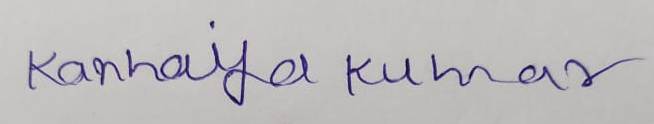 Kanhaiya Kumar